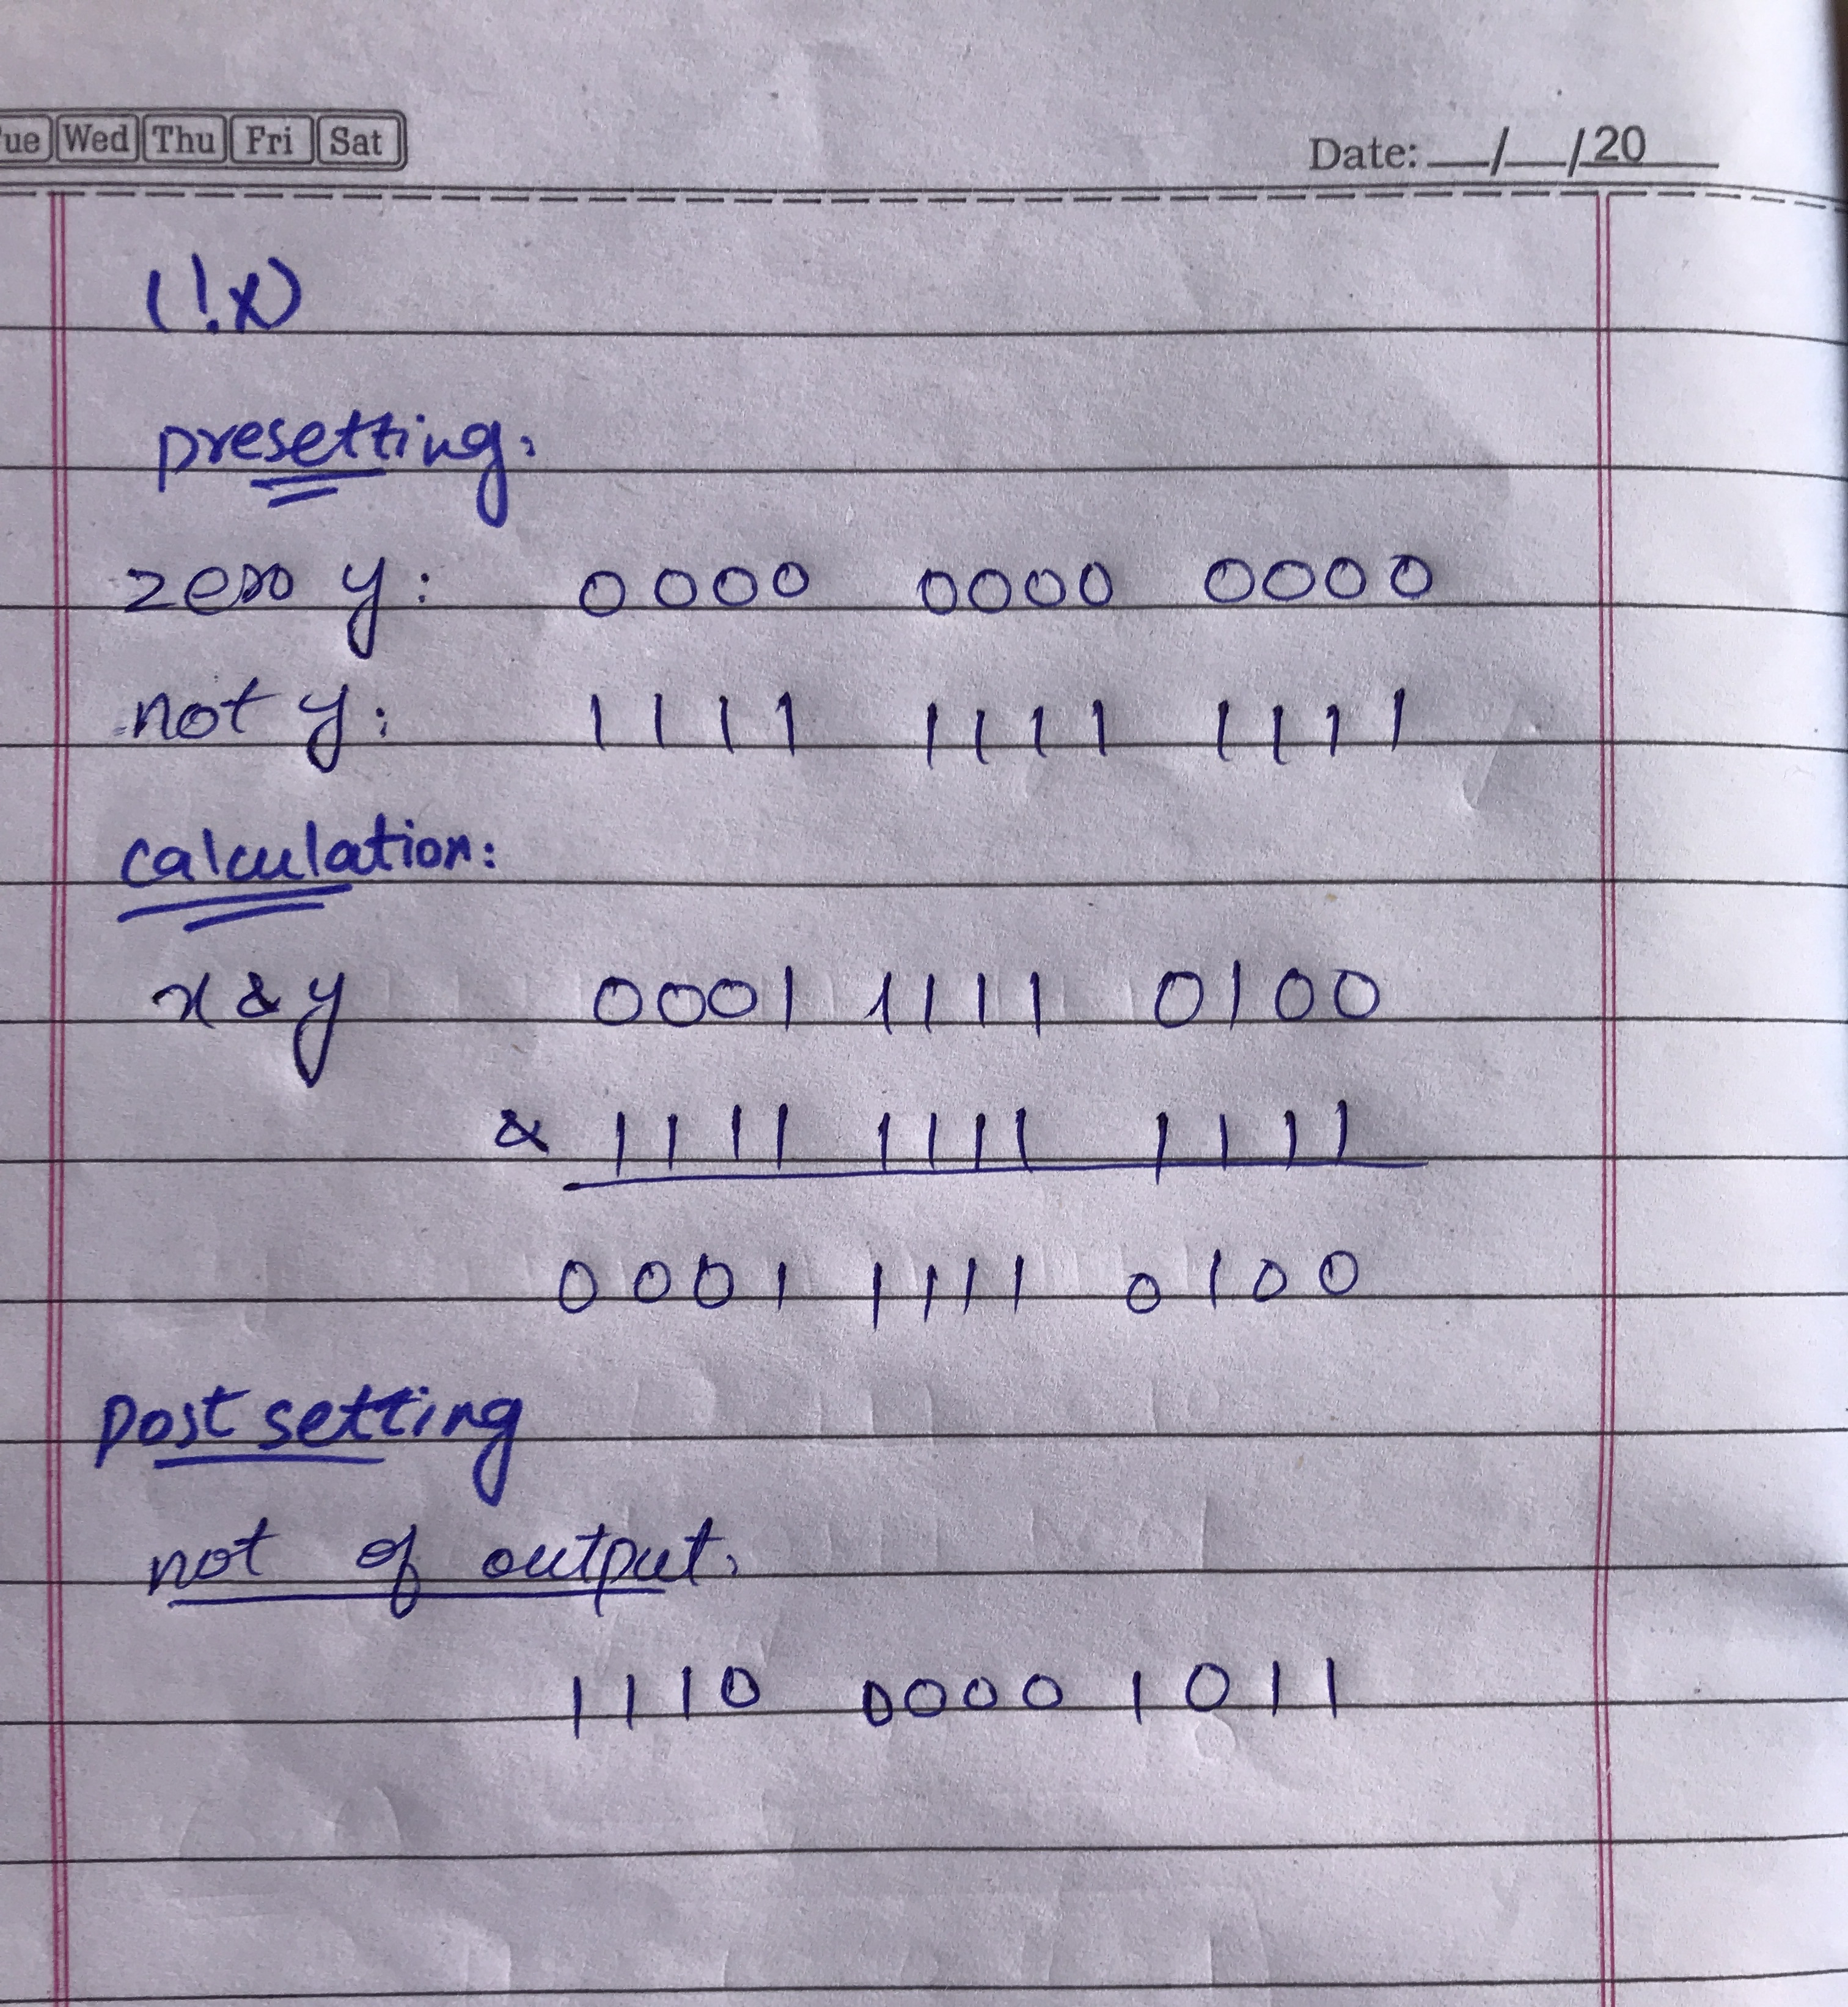 ue Wed Thu Fri Sat
Date: __/__/20__
(!x)
presetting:
zero y: 0000 0000 0000
not y: 1111 1111 1111
calculation:
x & y 0001 1111 0100
& 1111 1111 1111
0001 1111 0100
post setting
not of output:
1110 0000 1011